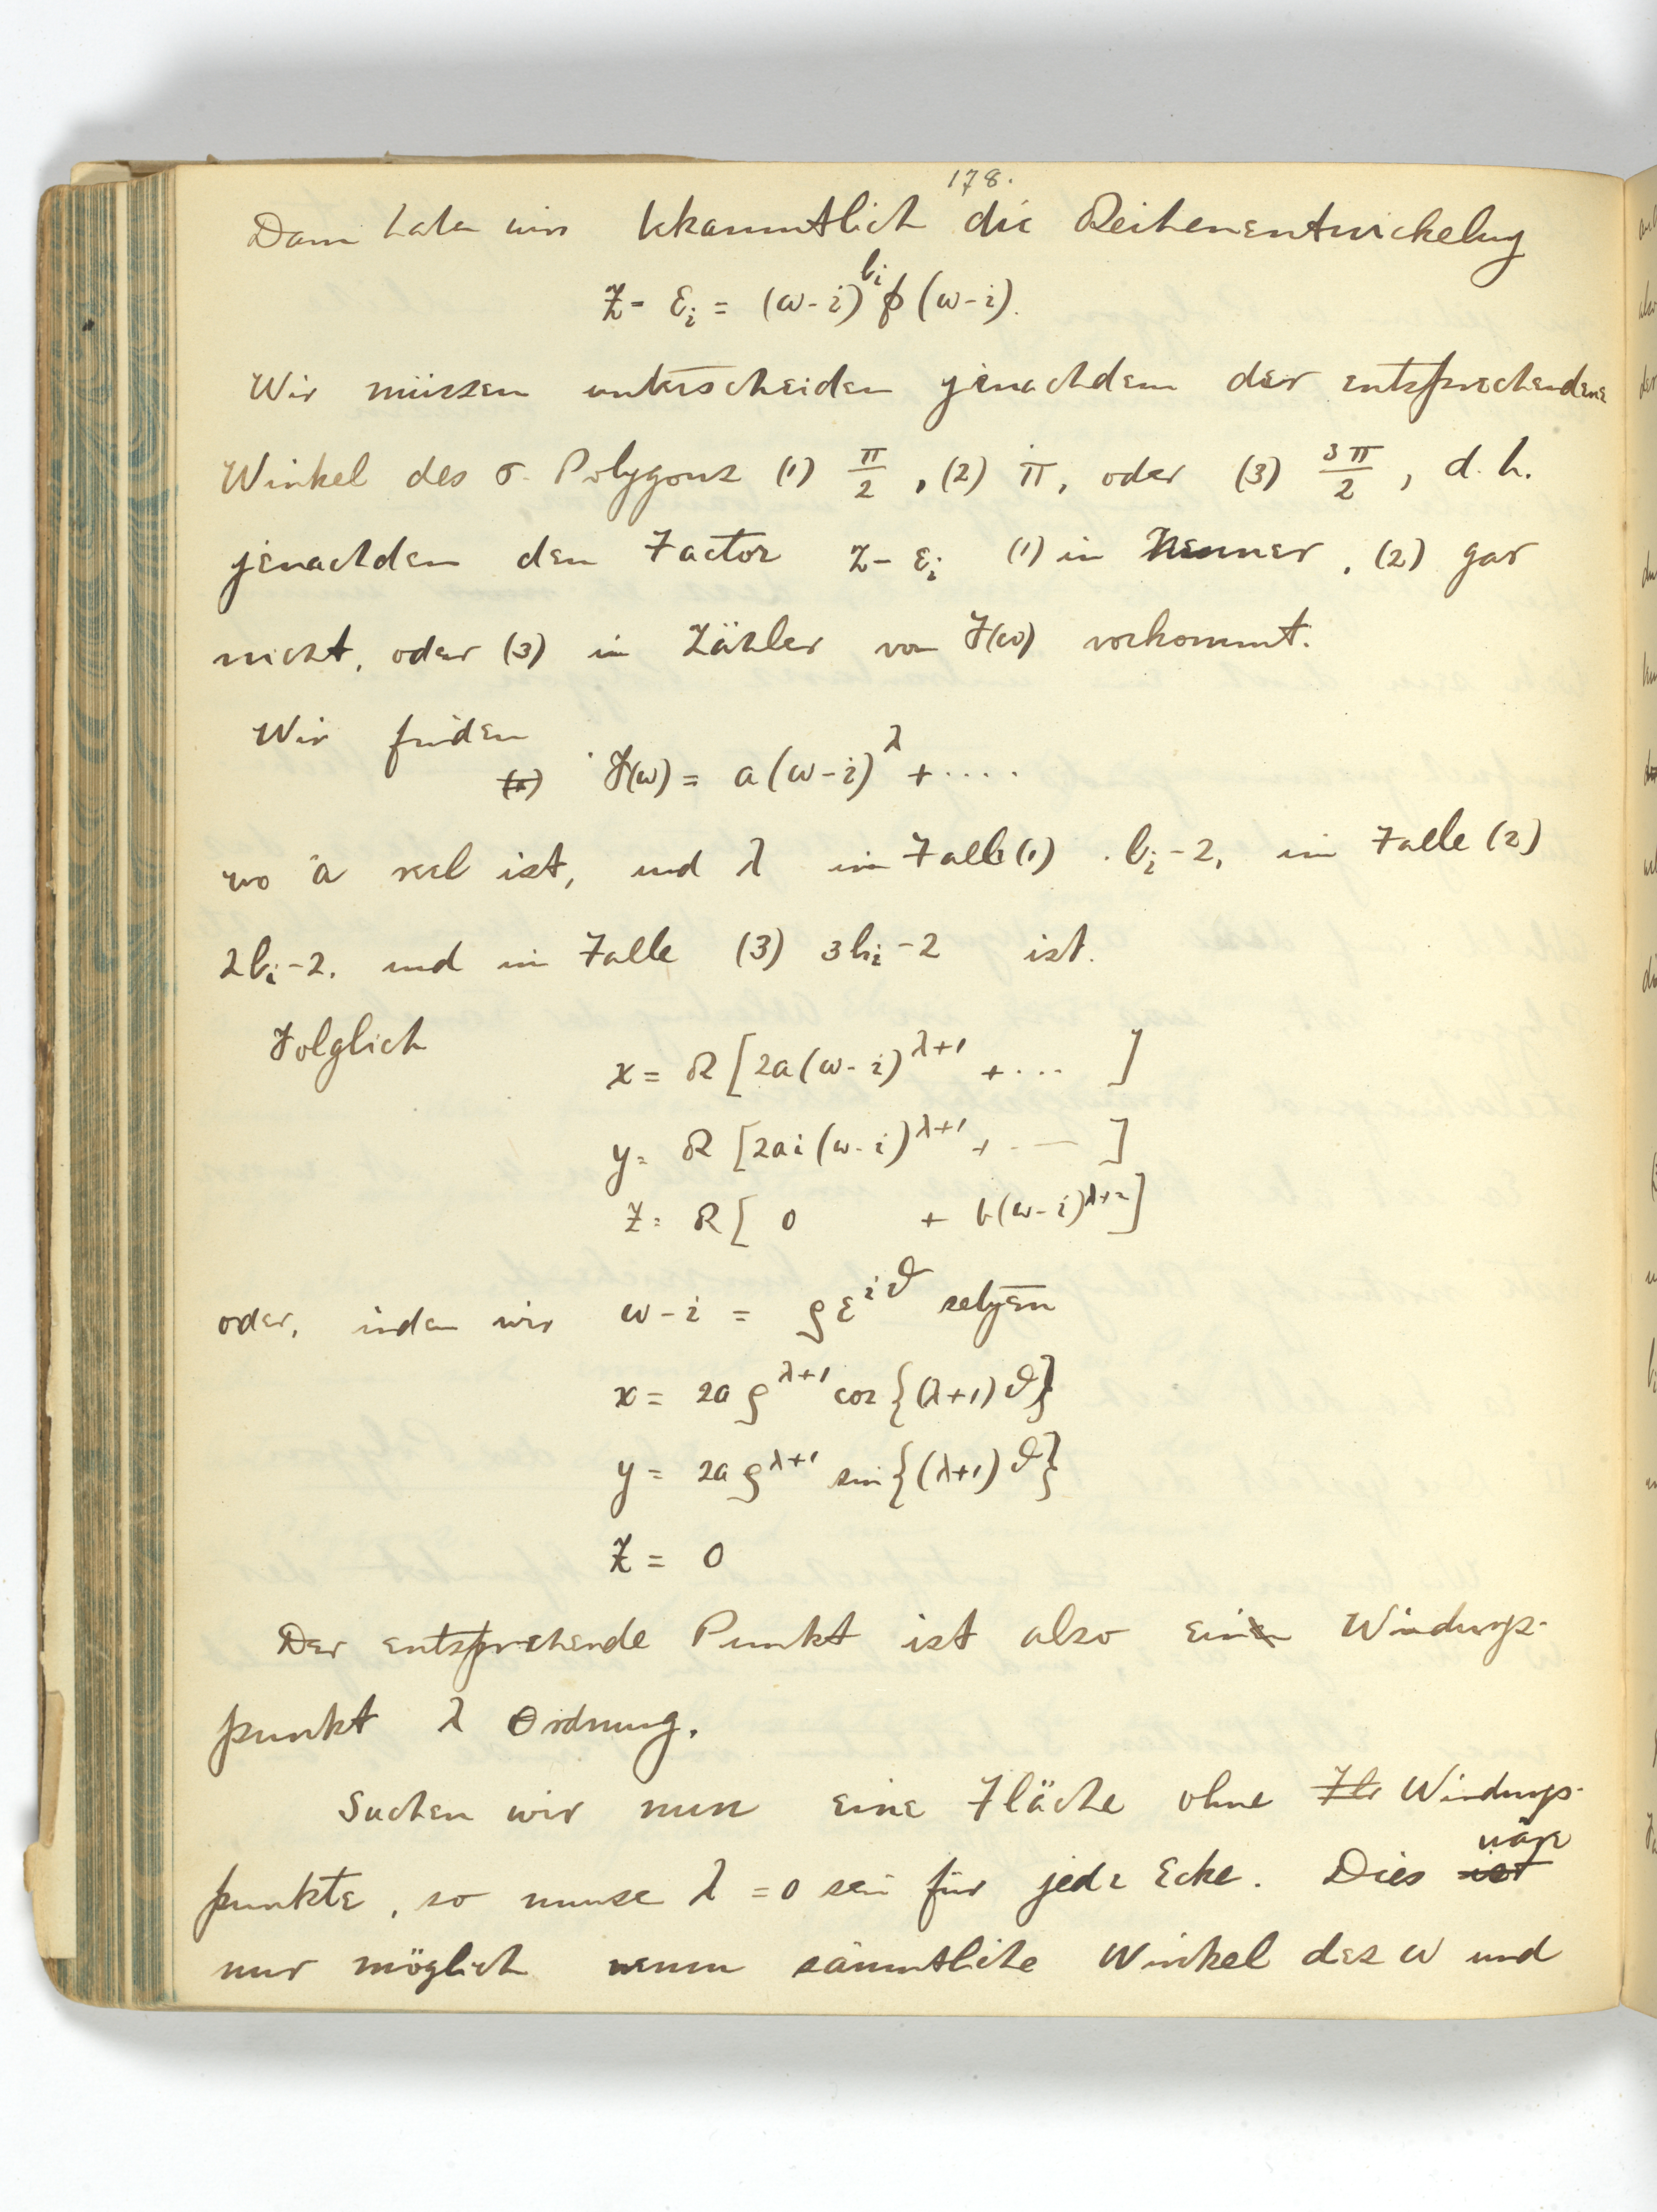 178.
Dann haben wir bekanntlich die Reihenentwickelung
Z - ε_i = (ω-i)^{b_i} p(ω-i).
Wir müssen unterscheiden jenachdem der entsprechende
Winkel des σ. Polygons (1) π/2, (2) π, oder (3) 3π/2, d.h.
jenachdem den Factor Z - ε_i (1) in Nenner, (2) gar
nicht, oder (3) in Zähler von F(ω) vorkommt.
Wir finden
F(ω) = a(ω-i)^λ + ....
wo a reel ist, und λ im Falle (1) b_i-2, im Falle (2)
2b_i-2, und im Falle (3) 3b_i-2 ist.
Folglich
x = R[2a(ω-i)^{λ+1} + ... ]
y = R[2ai(ω-i)^{λ+1} + ... ]
Z = R[ 0 + b(ω-i)^{λ+2}]
oder, indem wir ω-i = ρε^{iϑ} setzen
x = 2aρ^{λ+1} cos{(λ+1)ϑ}
y = 2aρ^{λ+1} sin{(λ+1)ϑ}
Z = 0
Der entsprechende Punkt ist also ein Windungs-
punkt λ Ordnung.
Suchen wir nun eine Fläche ohne Fl Windungs-
punkte, so muss λ = 0 sein für jede Ecke. Dies ist wäre
nur möglich wenn sämmtliche Winkel des ω und